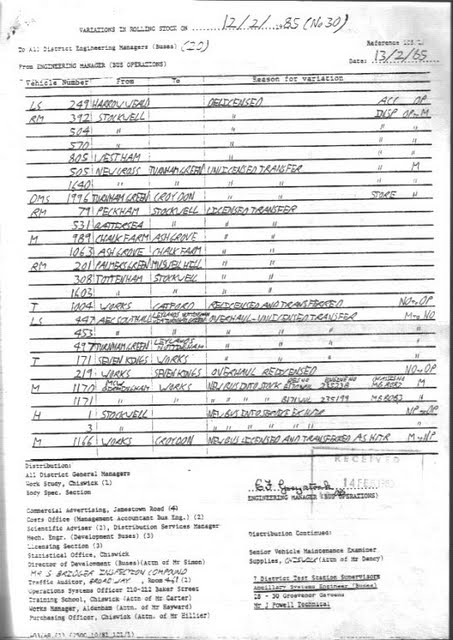 VARIATIONS IN ROLLING STOCK ON 12/2/1985 (No 30)
To All District Engineering Managers (Buses) (20)
Reference
From ENGINEERING MANAGER (BUS OPERATIONS)
Date: 13/2/85
Vehicle Number From To Reason for variation
LS 249 HARROW WEALD DELICENSED ACC OP
RM 392 STOCKWELL " INSP OP→M
504 " " " "
570 " " " "
805 WEST HAM " " "
505 NEW CROSS TURNHAM GREEN UNLICENSED TRANSFER M
1640 " " " " "
DMS 1996 TURNHAM GREEN CROYDON " " STORE H
RM 79 PECKHAM STOCKWELL LICENSED TRANSFER
531 BATTERSEA " " "
M 989 CHALK FARM ASH GROVE " "
1063 ASH GROVE CHALK FARM " "
RM 201 PALMERS GREEN MUSWELL HILL " "
308 TOTTENHAM STOCKWELL " "
1603 " " " "
T 1004 WORKS CATFORD RELICENSED AND TRANSFERRED NO→OP
LS 447 AEC SOUTHALL OVERHAUL - UNLICENSED TRANSFER M→NO
453 " " " " "
497 TURNHAM GREEN LEYLANDS NOTTINGHAM " " " "
T 171 SEVEN KINGS WORKS " " "
219 WORKS SEVEN KINGS OVERHAUL RELICENSED NO→OP
M 1170 MCW BIRMINGHAM WORKS NEW BUS INTO STOCK REG NO ENGINE NO CHASSIS NO M
1171 " " " " " " B171 WUL 235199 MB 8083 "
H 1 STOCKWELL NEW BUS INTO SERVICE EX HTR NP→OP
3 " " " " " " "
M 1166 WORKS CROYDON NEW BUS LICENSED AND TRANSFERRED AS HTR M→NP
RECEIVED
14 FEB
Distribution:
All District General Managers
Work Study, Chiswick (1)
Body Spec. Section
ENGINEERING MANAGER (BUS OPERATIONS)
Commercial Advertising, Jamestown Road (4)
Costs Office (Management Accountant Bus Eng.) (2)
Scientific Adviser (2), Distribution Services Manager
Mech. Engr. (Development Buses) (3)
Licensing Section (3)
Statistical Office, Chiswick
Director of Development (Buses)(Attn of Mr Simon)
MR S BRIDGER INSPECTION COMPOUND
Traffic Auditor, BROADWAY, Room 461 (1)
Operations Systems Officer 210-212 Baker Street
Training School, Chiswick (Attn of Mr Carter)
Works Manager, Aldenham (Attn of Mr Hayward)
Purchasing Officer, Chiswick (Attn of Mr Hillier)
Distribution Continued:
Senior Vehicle Maintenance Examiner
Supplies, CHISWICK (Attn of Mr Dancy)
7 District Test Station Supervisors
Ancillary Systems Engineer (Buses)
28 - 30 Grosvenor Gardens
Mr J Powell Technical